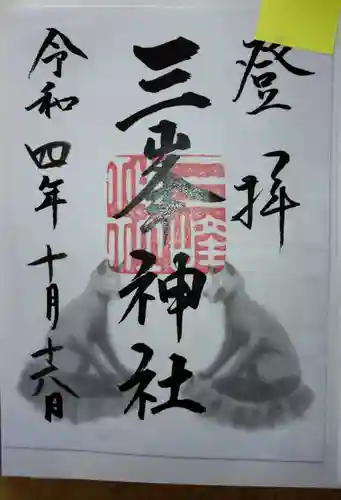 登拝
三峯神社
令和四年十月十六日